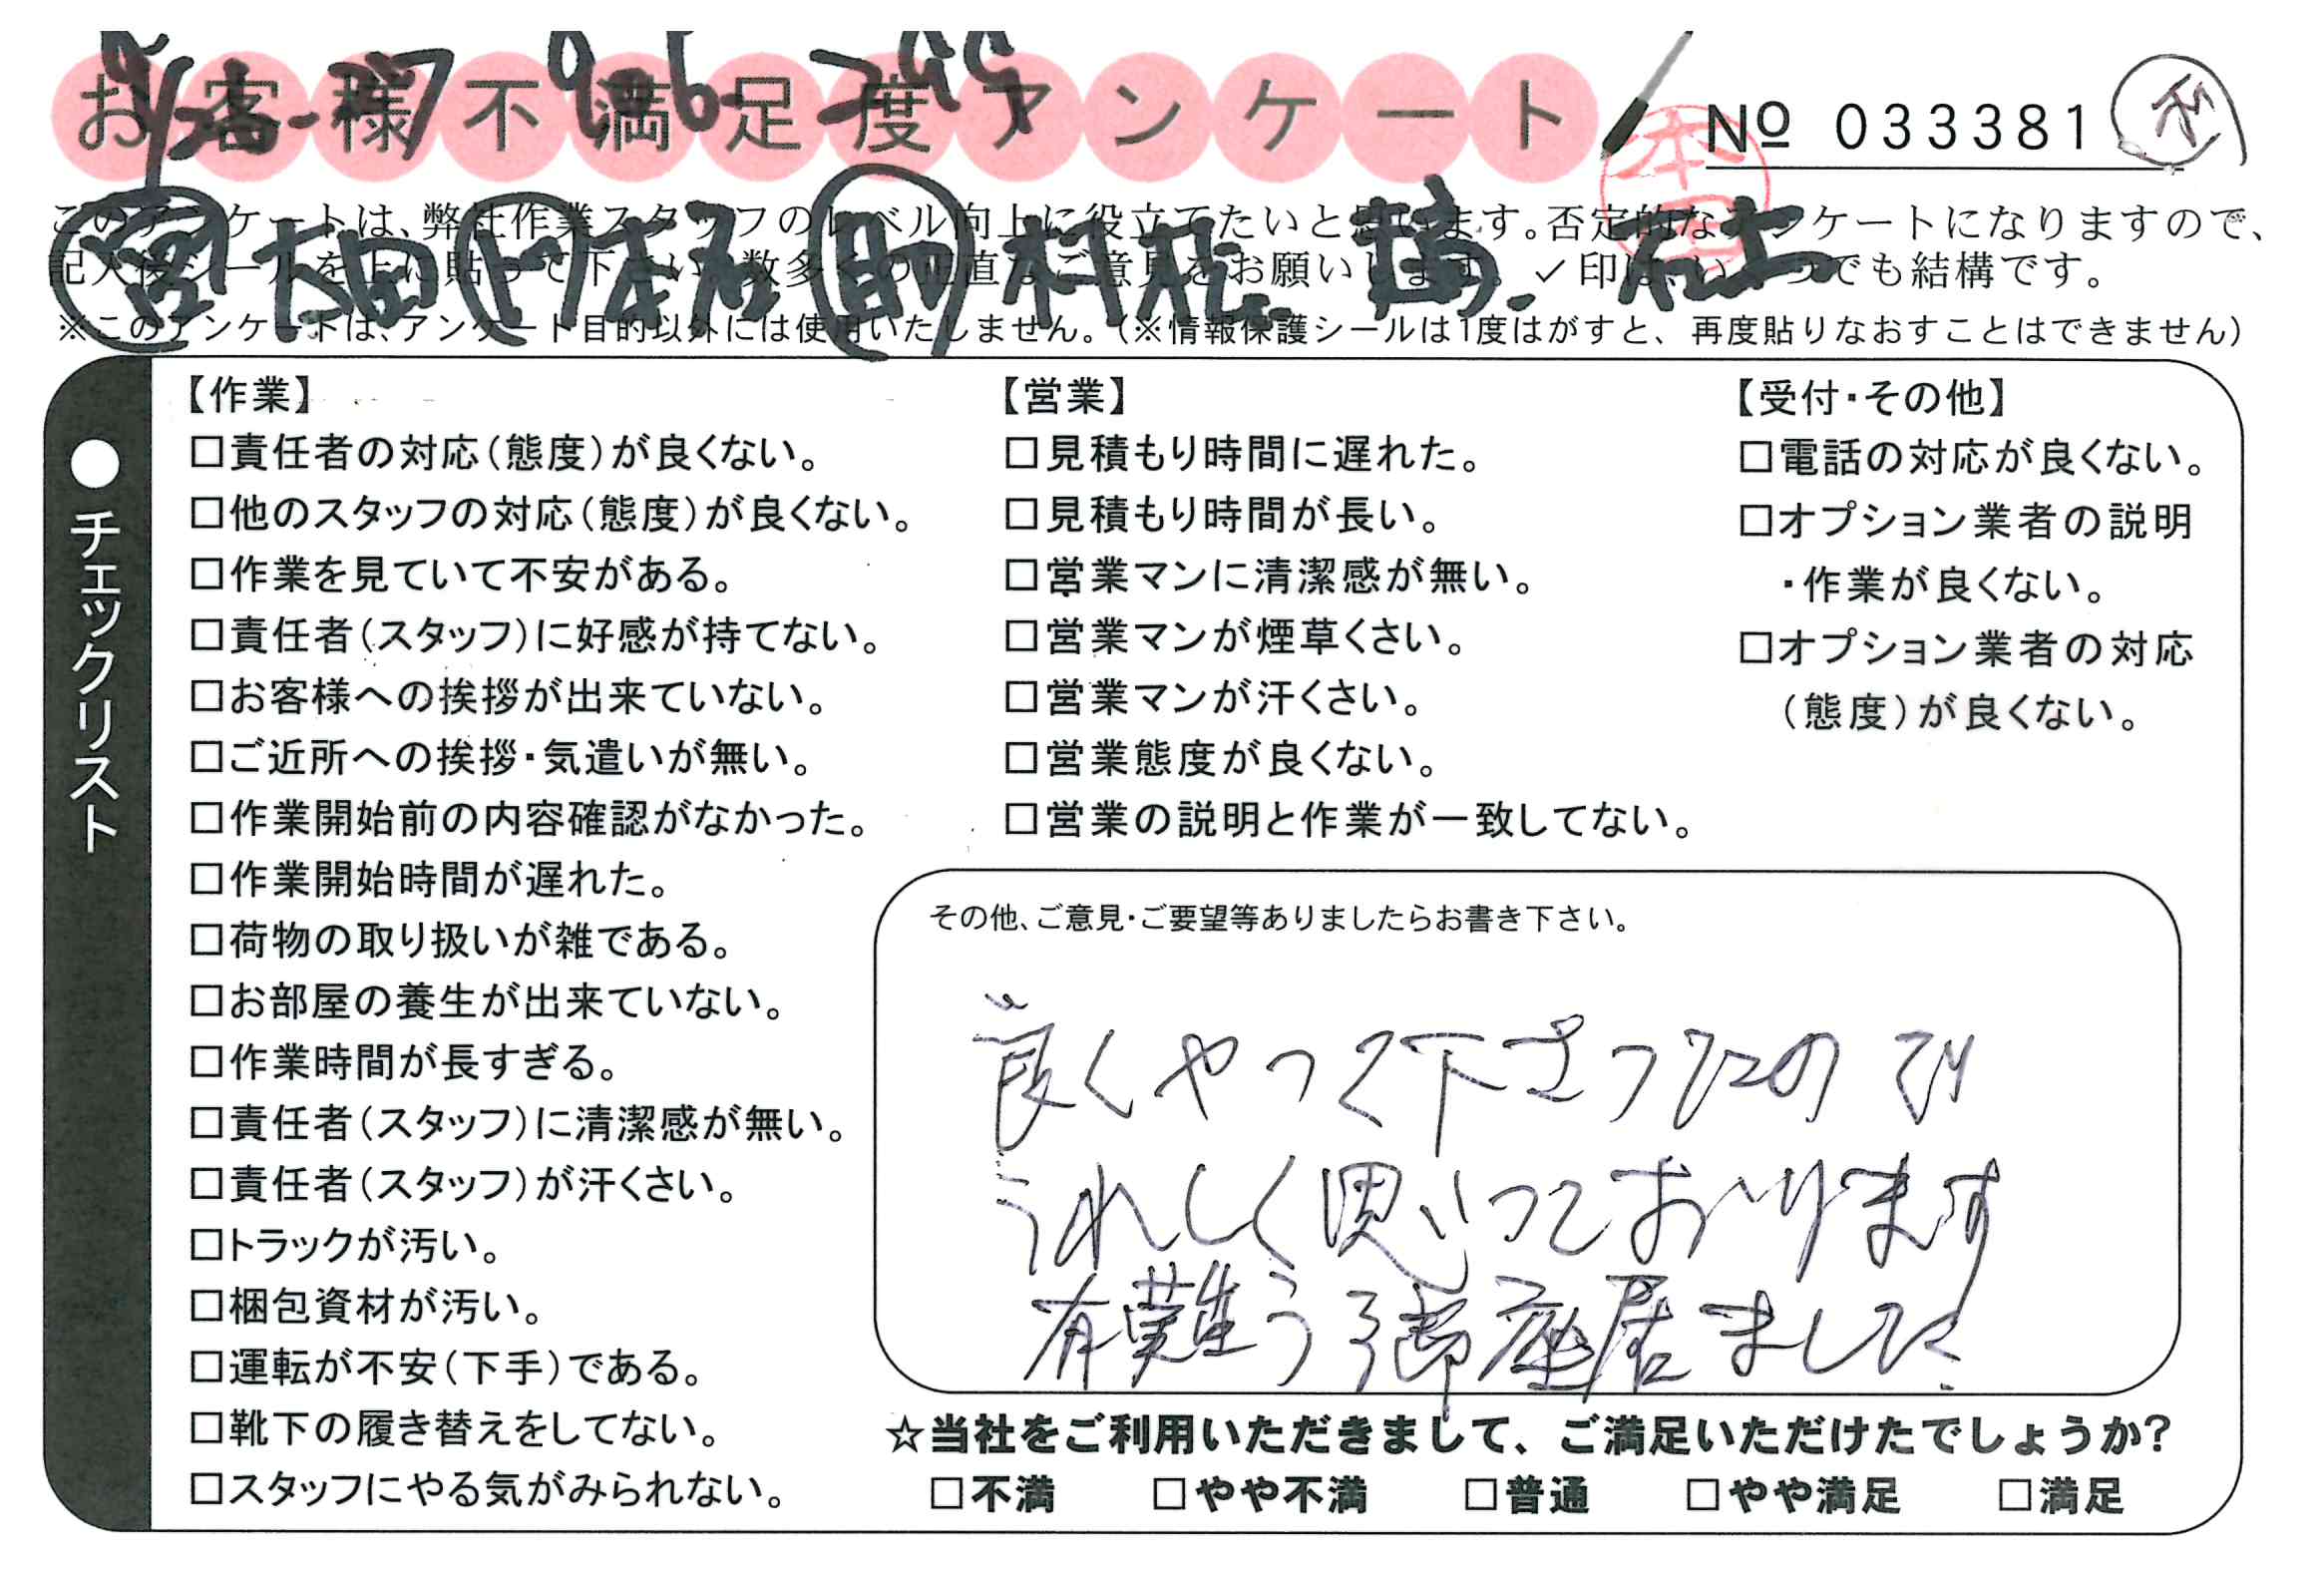 お客様不満足度アンケート
№ 033381
本
このアンケートは、弊社作業スタッフのレベル向上に役立てたいと思います。否定的なアンケートになりますので、
記入後シールを上に貼って下さい。数多くの正直なご意見をお願いします。✓印は、いくつでも結構です。
※このアンケートは、アンケート目的以外には使用いたしません。(※情報保護シールは1度はがすと、再度貼りなおすことはできません)
太田 村松
●チェックリスト
【作業】
□責任者の対応(態度)が良くない。
□他のスタッフの対応(態度)が良くない。
□作業を見ていて不安がある。
□責任者(スタッフ)に好感が持てない。
□お客様への挨拶が出来ていない。
□ご近所への挨拶・気遣いが無い。
□作業開始前の内容確認がなかった。
□作業開始時間が遅れた。
□荷物の取り扱いが雑である。
□お部屋の養生が出来ていない。
□作業時間が長すぎる。
□責任者(スタッフ)に清潔感が無い。
□責任者(スタッフ)が汗くさい。
□トラックが汚い。
□梱包資材が汚い。
□運転が不安(下手)である。
□靴下の履き替えをしてない。
□スタッフにやる気がみられない。
【営業】
□見積もり時間に遅れた。
□見積もり時間が長い。
□営業マンに清潔感が無い。
□営業マンが煙草くさい。
□営業マンが汗くさい。
□営業態度が良くない。
□営業の説明と作業が一致してない。
【受付・その他】
□電話の対応が良くない。
□オプション業者の説明
・作業が良くない。
□オプション業者の対応
(態度)が良くない。
その他、ご意見・ご要望等ありましたらお書き下さい。
良くやって下さつたので
うれしく思いつております
有難う御座居ました
☆当社をご利用いただきまして、ご満足いただけたでしょうか?
□不満 □やや不満 □普通 □やや満足 □満足